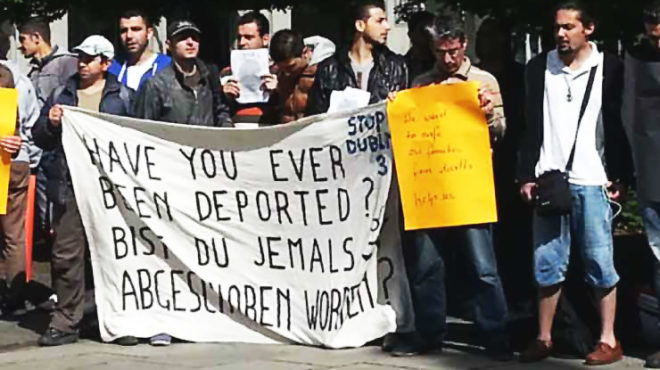 HAVE YOU EVER
BEEN DEPORTED?
BIST DU JEMALS
ABGESCHOBEN WORDEN?
STOP
DUBLIN
3
We want
to safe
our families
from death
help us